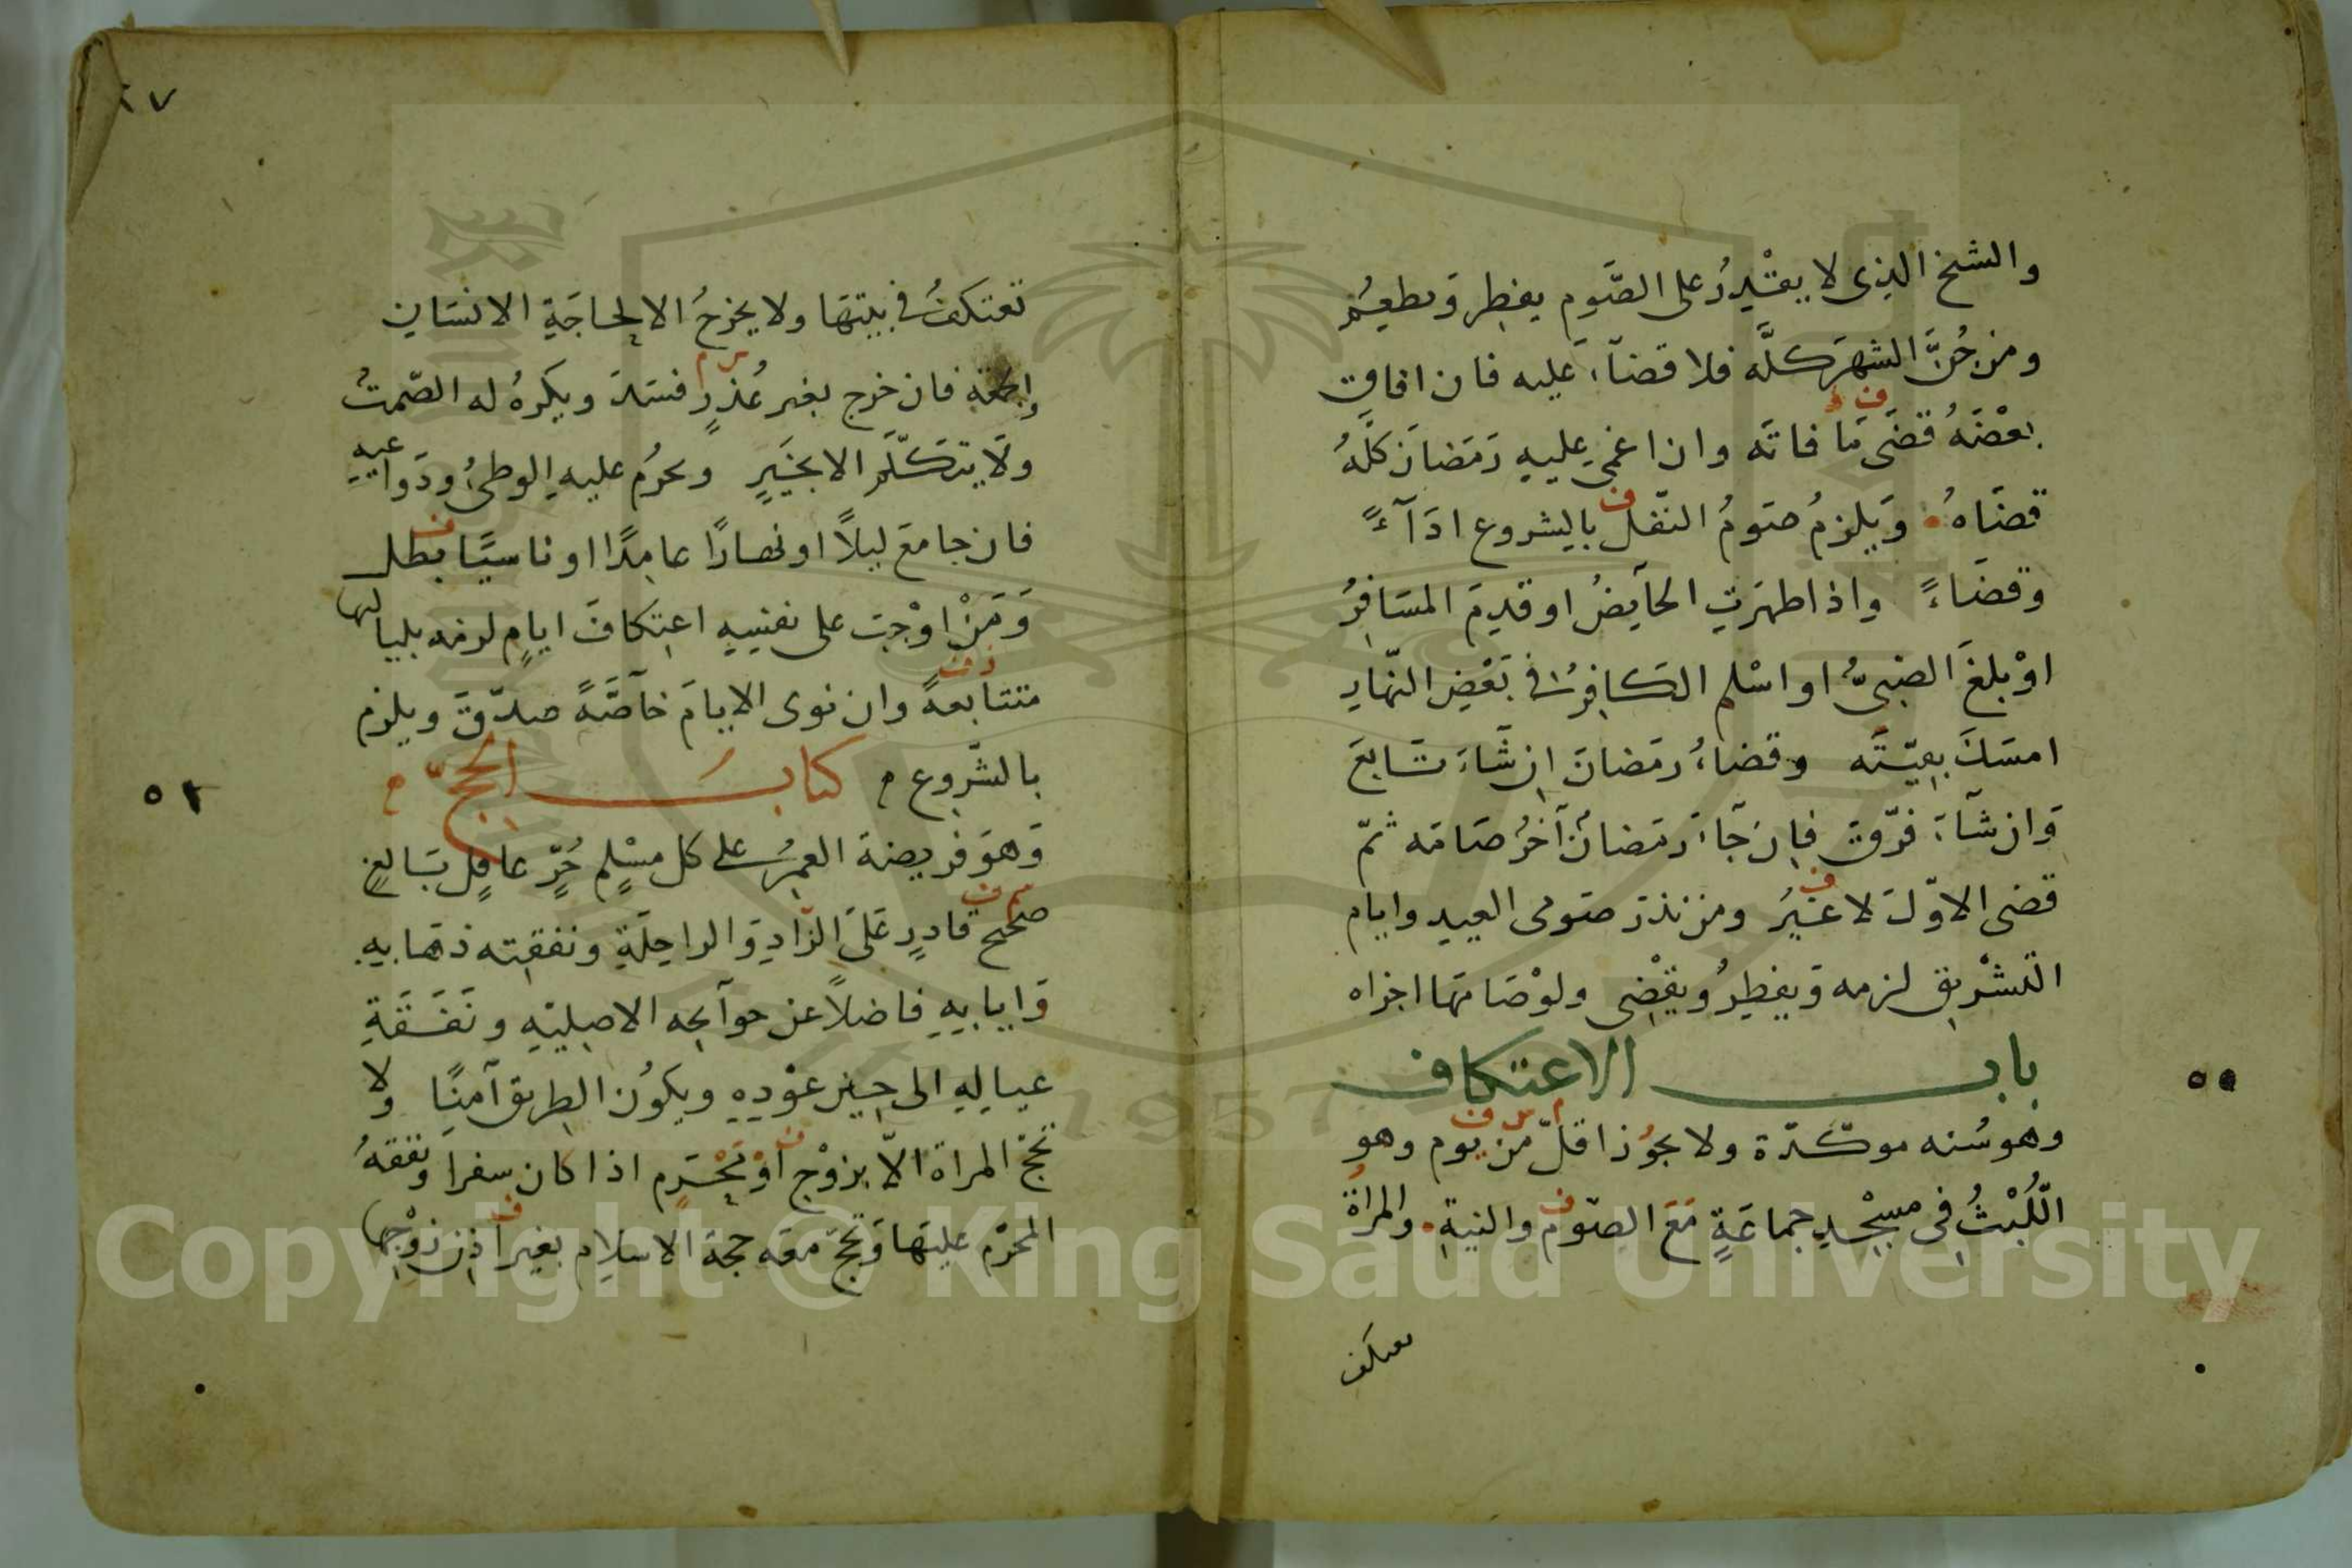 والشيخ الذى لا يقْدِرُ على الصَّوم يفطِر وَيطعِمُ
ومن جُنَّ الشهرَ كلَّه فلا قضآءَ عَليه فان افاق
بعْضَهُ قضَى مَا فاتَه وان اغمى عليهِ رَمَضانَ كلَّهُ
قضَاهُ وَيلزمُ صَومُ النّفل بالشروع ادَآءً
وقضَاءً واذا طهرَتِ الحآيضُ او قدِمَ المسَافِرُ
اوْ بلغَ الصَبىُّ او اسْلم الكافِرُ فى بَعْضِ النّهارِ
امسَكَ بقيّتَه وقضاءُ رمَضانَ اِن شَاءَ تَابعَ
وَان شآءَ فرّقَ فاِن جَآءَ رمَضانٌ آخرُ صَامَه ثمّ
قضى الاوّلَ لا غيْرُ ومن نذرَ صَومى العيد وايام
التشْريق لزمه وَيفطِرُ ويقْضِى ولوْ صَامَهَا اجزاه
باب الاعتكاف
وهو سُنه موكّدَة ولا يجُوز اقلّ من يوم وهو
اللُّبْثُ فى مسْجدِ جماعَةٍ مَعَ الصّوم والنيةِ والمراةُ
تعتكف
٢٧
تعتكفُ فى بيتهَا ولا يخرجُ الا لحاجَةِ الانسَانِ
والجمعة فان خرج بغير عُذرٍ فسَدَ ويكرهُ له الصّمتُ
ولَا يتكلّمُ الا بخيَرٍ ويحرُم عليهِ الوطىُ ودَواعيهِ
فان جامعَ ليلاً او نهارًا عامِدًا او ناسيًا بطل
وَمَنْ اوْجبَ على نفسِهِ اعتِكافَ ايامٍ لزمه بلياليها
متتابعةً وان نوى الايامَ خآصَّةً صدّقَ ويلزم
بالشّروع كتابُ الحجّ
وَهوَ فريضة العمُرِ على كل مسْلِم حُرٍّ عاقِلٍ بَالغٍ
صحيح قادرٍ عَلَى الزّادِ وَالراحِلَةِ ونفقته ذهَابِهِ
وَايابِهِ فاضلاً عن حوآيجه الاصلِيّهِ ونَفَقَةِ
عيالِهِ الى حِينِ عوْدِهِ ويكونُ الطريق آمِنًا ولا
تحجّ المراة الاّ بزوْج اوْ محْرَمٍ اذا كان سفرا ونفقةُ
المحْرَم عليهَا وَتحجّ معَه حجةَ الاسلام بغير اذن زوْجِها
Copyright © King Saud University
1957